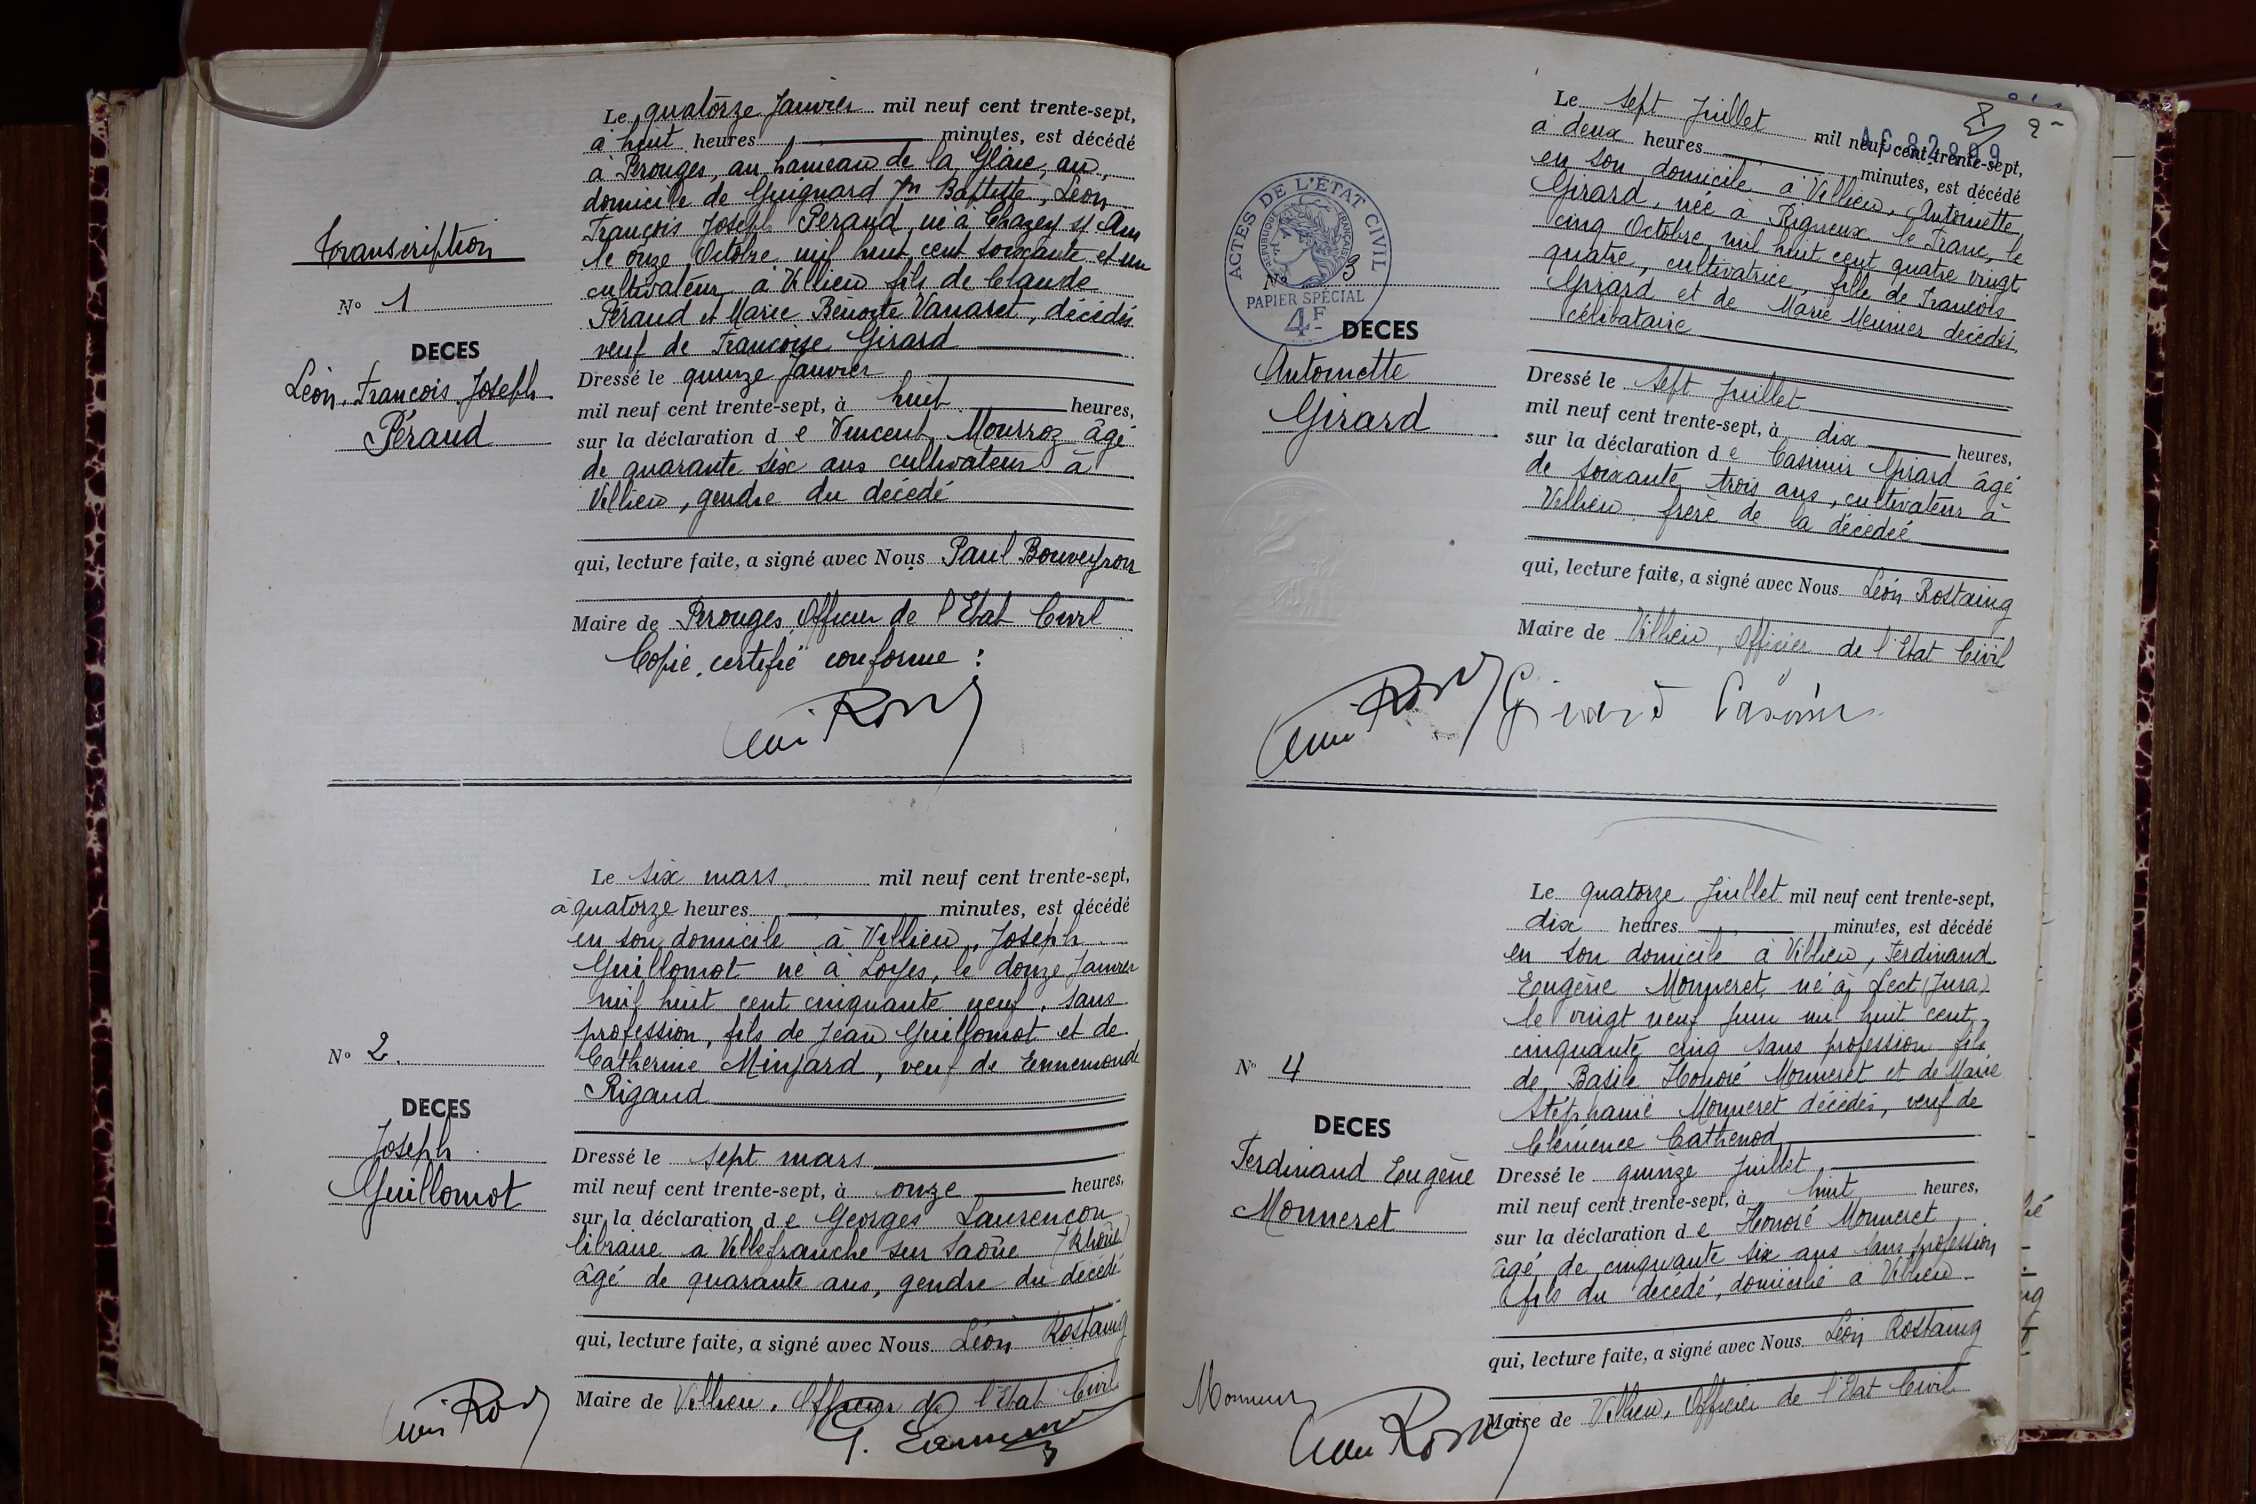 Transcription
N° 1
DECES
Léon, François Joseph
Péraud
Le quatorze Janvier mil neuf cent trente-sept,
à huit heures minutes, est décédé
à Pérouges, au hameau de la Glaie, au
domicile de Guignard Jn Baptiste, Léon
François Joseph Péraud, né à Chazey s/ Ain
le onze Octobre mil huit cent soixante et un
cultivateur à Villieu fils de Claude
Péraud et Marie Benoite Vanaret, décédés
veuf de Françoise Girard
Dressé le quinze Janvier
mil neuf cent trente-sept, à huit heures,
sur la déclaration d e Vincent Mourroz âgé
de quarante six ans cultivateur à
Villieu, gendre du décédé
qui, lecture faite, a signé avec Nous Paul Bouveyron
Maire de Pérouges, Officier de l'Etat Civil
Copie certifié conforme :
N° 2.
DECES
Joseph
Guillomot
Le six mars mil neuf cent trente-sept,
à quatorze heures minutes, est décédé
en son domicile à Villieu, Joseph
Guillomot né à Loyes, le douze Janvier
mil huit cent cinquante neuf, sans
profession, fils de Jean Guillomot et de
Catherine Minjard, veuf de Ennemonde
Rigaud
Dressé le sept mars
mil neuf cent trente-sept, à onze heures,
sur la déclaration d e Georges Laurençon
libraire a Villefranche sur Saône (Rhône)
âgé de quarante ans, gendre du décédé
qui, lecture faite, a signé avec Nous Léon Rostaing
Maire de Villieu, Officier de l'Etat Civil
ACTES DE L'ÉTAT CIVIL
RÉPUBLIQUE FRANÇAISE
PAPIER SPÉCIAL
4F
N° 3
DECES
Antoinette
Girard
Le sept Juillet mil neuf cent trente-sept,
à deux heures minutes, est décédé
en son domicile à Villieu, Antoinette
Girard, née à Rigneux le Franc, le
cinq Octobre mil huit cent quatre vingt
quatre, cultivatrice, fille de François
Girard et de Marie Meunier décédés,
célibataire
Dressé le sept Juillet
mil neuf cent trente-sept, à dix heures,
sur la déclaration d e Casimir Girard âgé
de soixante trois ans, cultivateur à
Villieu frère de la décédée
qui, lecture faite, a signé avec Nous Léon Rostaing
Maire de Villieu, Officier de l'Etat Civil
Girard Casimir
N° 4
DECES
Ferdinand Eugène
Monneret
Le quatorze Juillet mil neuf cent trente-sept,
dix heures minutes, est décédé
en son domicile à Villieu, Ferdinand
Eugène Monneret, né à Lect (Jura)
le vingt neuf Juin mil huit cent
cinquante cinq sans profession fils
de Basile Honoré Monneret et de Marie
Stéphanie Monneret décédés, veuf de
Clémence Cathenod
Dressé le quinze Juillet
mil neuf cent trente-sept, à huit heures,
sur la déclaration d e Honoré Monneret
âgé de cinquante six ans sans profession
fils du décédé, domicilié à Villieu
qui, lecture faite, a signé avec Nous Léon Rostaing
Maire de Villieu, Officier de l'Etat Civil
Monneret